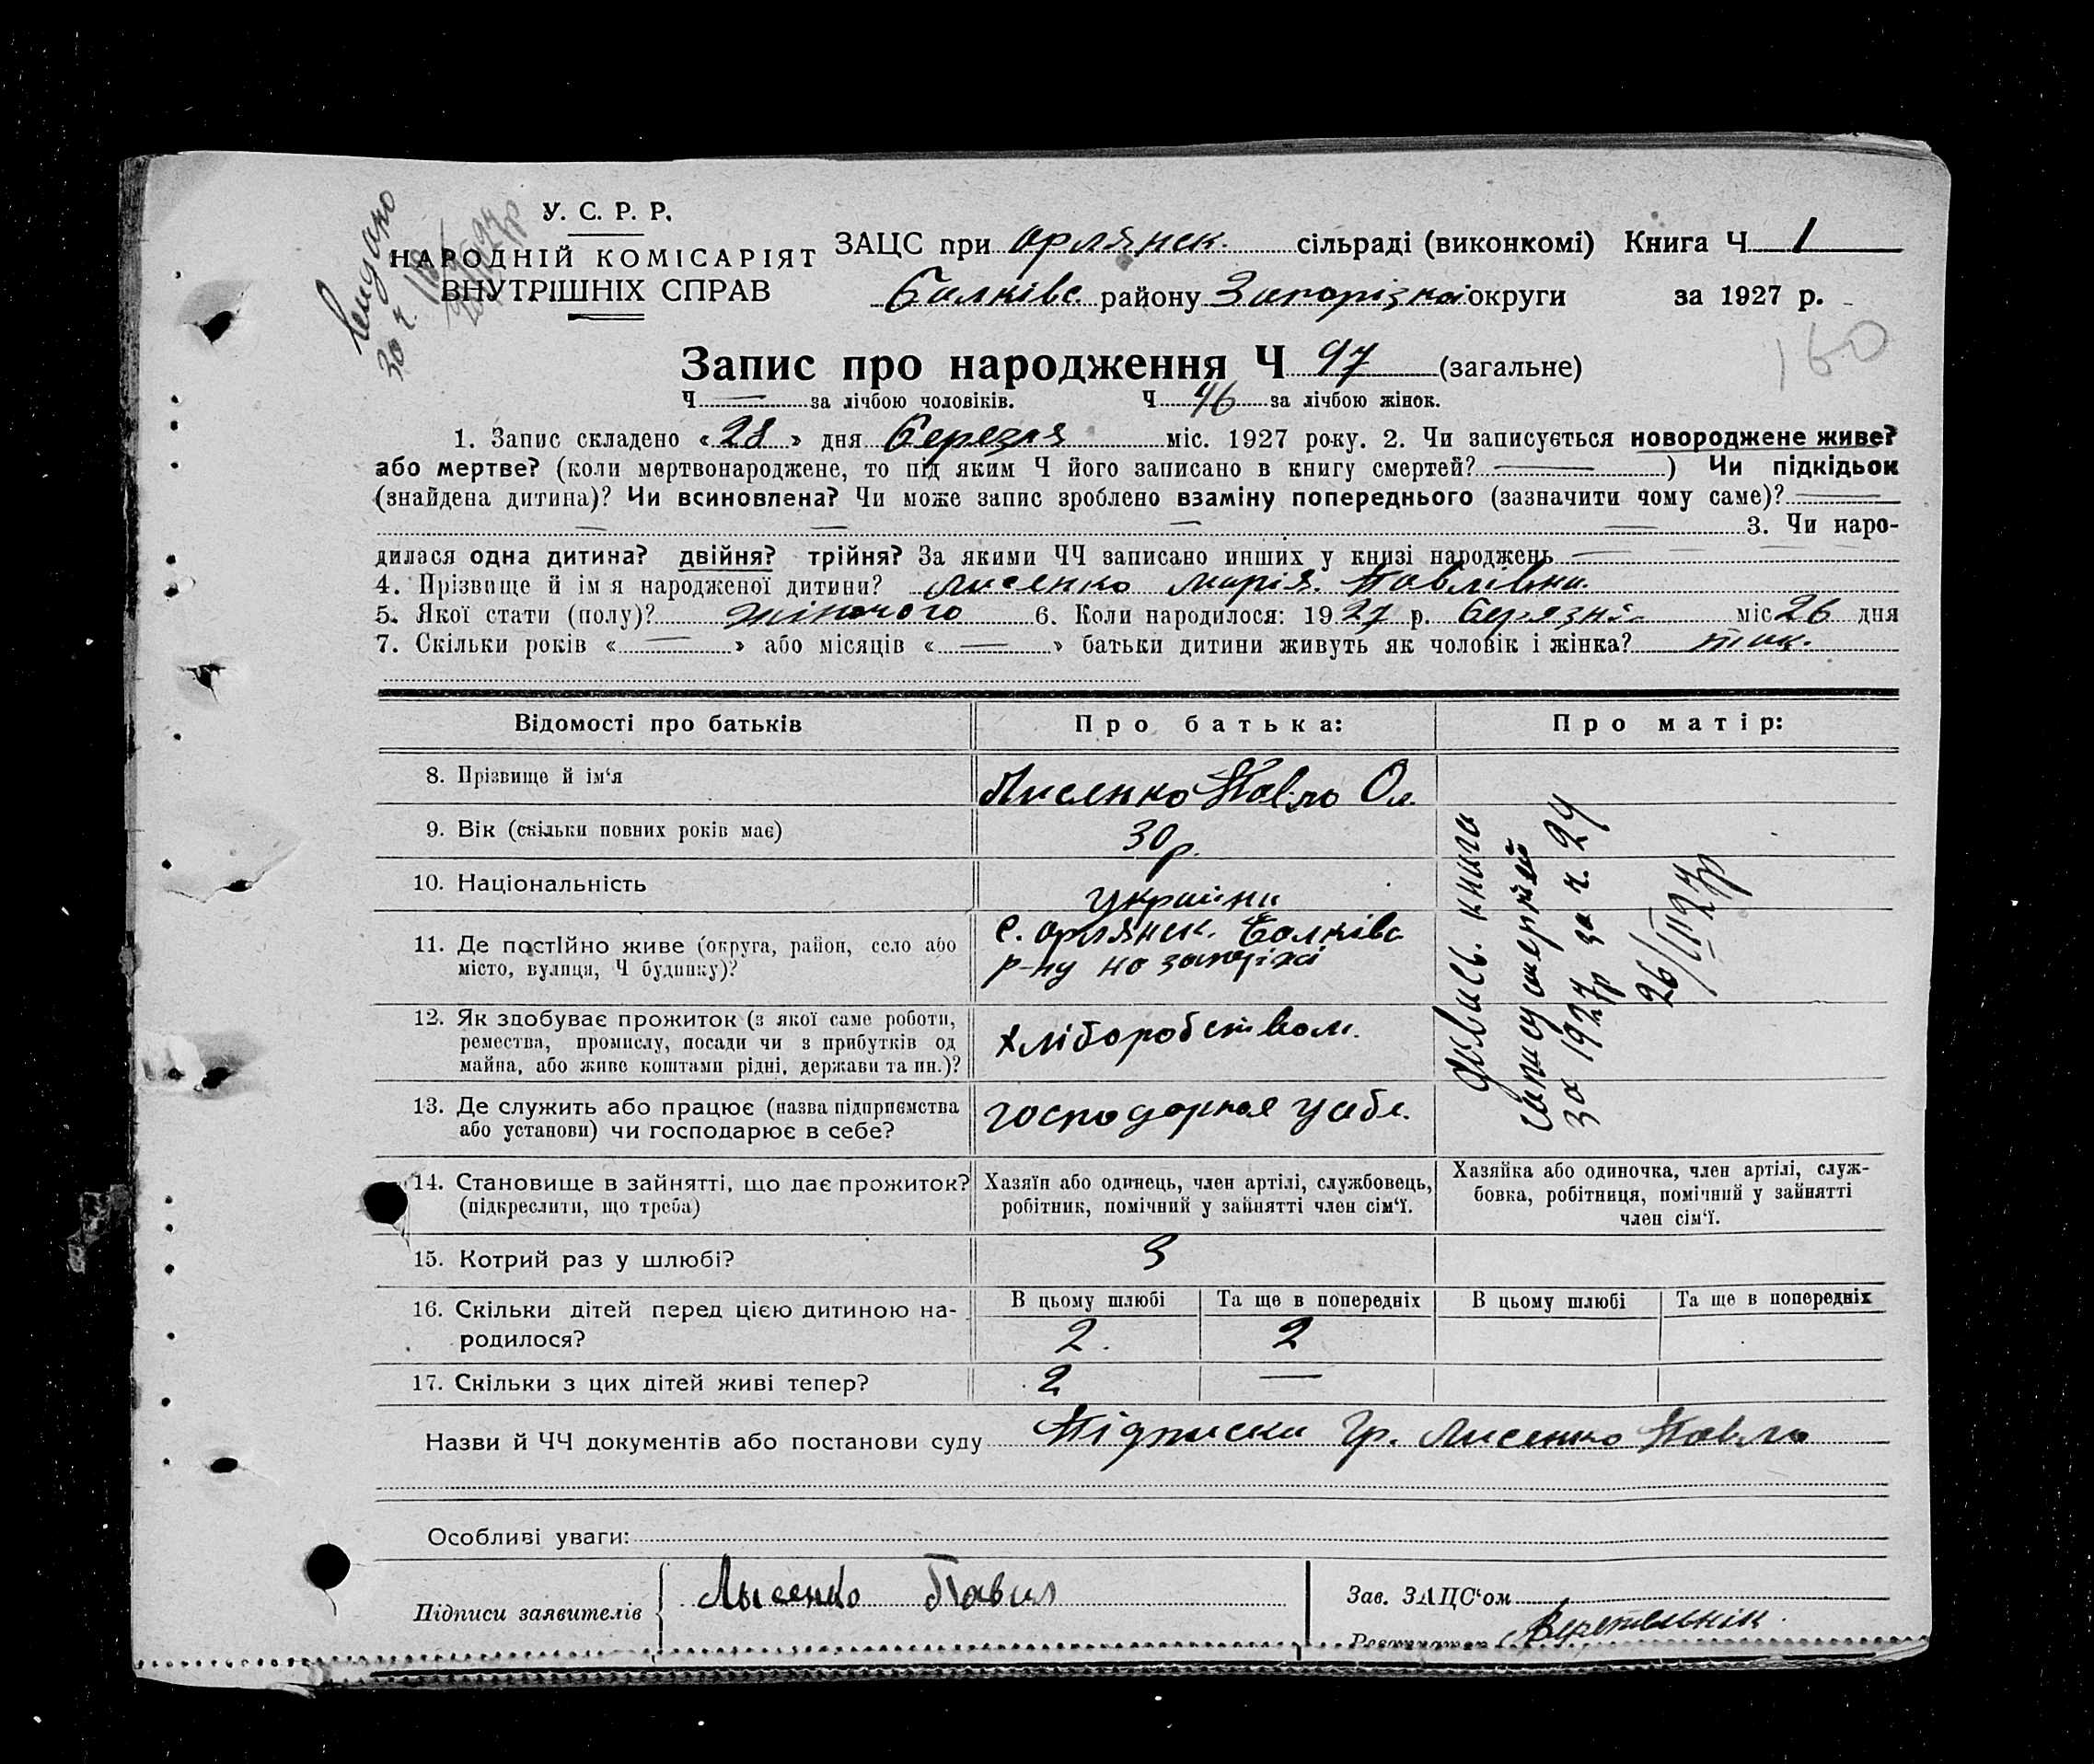 У. С. Р. Р.
НАРОДНІЙ КОМІСАРІЯТ
ВНУТРІШНІХ СПРАВ
ЗАЦС при Орлянск. сільраді (виконкомі) Книга Ч 1
Балківс району Запорізької округи за 1927 р.
160
Запис про народження Ч 97 (загальне)
Ч — за лічбою чоловіків. Ч 46 за лічбою жінок.
1. Запис складено «28» дня Березня міс. 1927 року. 2. Чи записується новороджене живе?
або мертве? (коли мертвонароджене, то під яким Ч його записано в книгу смертей? —) Чи підкідьок
(знайдена дитина)? Чи всиновлена? Чи може запис зроблено взаміну попереднього (зазначити чому саме)? —
— — — — 3. Чи наро-
дилася одна дитина? двійня? трійня? За якими ЧЧ записано инших у книзі народжень —
4. Прізвище й ім я народженої дитини? Лисенко Марія Павлівна.
5. Якої стати (полу)? жіночого 6. Коли народилося: 1927 р. Березні міс 26 дня
7. Скільки років «—» або місяців «—» батьки дитини живуть як чоловік і жінка? так.
Відомості про батьків Про батька: Про матір:
8. Прізвище й ім‘я Лисенко Павло Ол.
9. Вік (скільки повних років має) 30 р.
10. Національність україни
11. Де постійно живе (округа, район, село або
місто, вулиця, Ч будинку)?
с. Орлянск. Балківс
р-ну на запоріжі
12. Як здобуває прожиток (з якої саме роботи,
ремества, промислу, посади чи з прибутків од
майна, або живе коштами рідні, держави та ин.)?
хліборобством.
13. Де служить або працює (назва підприємства
або установи) чи господарює в себе?
господарює у себе.
дивись. книга
запису смертей
за 1927 р за ч. 24
26/III 27 р
14. Становище в зайнятті, що дає прожиток?
(підкреслити, що треба)
Хазяїн або одинець, член артілі, службовець,
робітник, помічний у зайнятті член сім‘ї.
Хазяйка або одиночка, член артілі, служ-
бовка, робітниця, помічний у зайнятті
член сім‘ї.
15. Котрий раз у шлюбі? 3
16. Скільки дітей перед цією дитиною на-
родилося?
В цьому шлюбі Та ще в попередніх В цьому шлюбі Та ще в попередніх
2. 2
17. Скільки з цих дітей живі тепер? 2 —
Назви й ЧЧ документів або постанови суду Підписки гр. Лисенко Павло
Особливі уваги:
Підписи заявителів Лысенко Павил
Зав. ЗАЦС‘ом